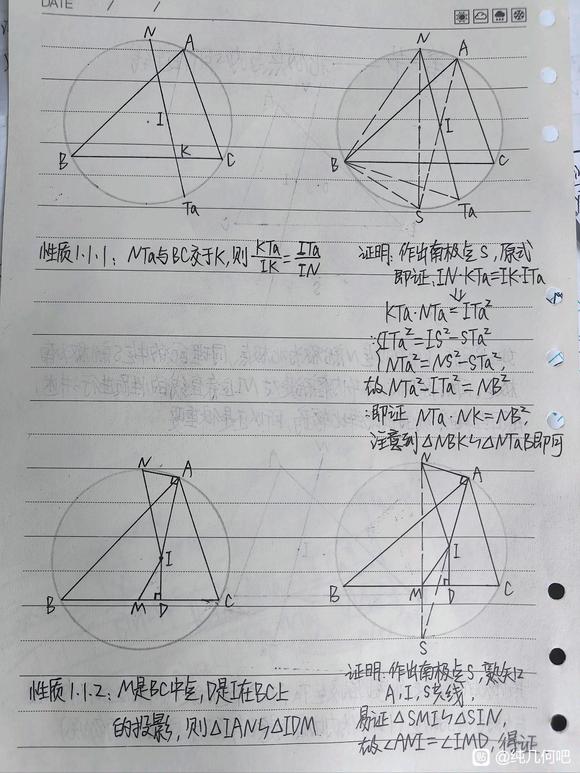 DATE / /
N A I B K C Ta
N A I B C S Ta
性质1.1.1: NTa与BC交于K, 则 KTa/IK = ITa/IN
证明: 作出南极点S, 原式
即证: IN·KTa=IK·ITa
⇓
KTa·NTa=ITa²
∵{ITa²=IS²-STa²
NTa²=NS²-STa²,
故 NTa²-ITa²=NB²
∴即证 NTa·NK=NB²,
注意到△NBK∽△NTaB即可
N A I B M D C
N A I B M D C S
性质1.1.2: M是BC中点, D是I在BC上
的投影, 则△IAN∽△IDM
证明: 作出南极点S, 熟知
A, I, S共线,
易证△SMI∽△SIN,
故∠ANI=∠IMD, 得证
贴 @纯几何吧